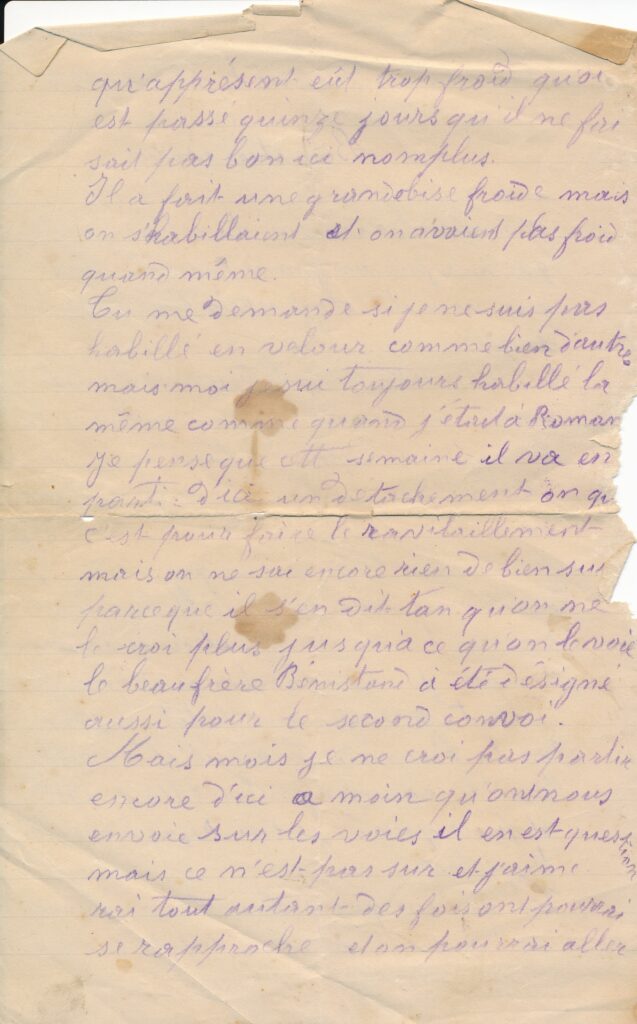 qu'apprésent eût trop froid quoi
est passé quinze jours qu'il ne fai
sait pas bon ici nomplus.
Il a fait une grande bise froide mais
on s'habillaient et on avoient pas froid
quand même.
Tu me demande si je ne suis pas
habillé en velour comme bien d'autres
mais moi je sui toujours habillé la
même comme quand j'étai à Roman
Je pense que cett semaine il va en
parti d'ici un détachement on
c'est pour faire le ravitaillement
mais on ne sai encore rien de bien sur
parceque il s'en dit tan qu'on ne
le croi plus jusqu'à ce qu'on le voie
le beaufrère Bénistand à été désigné
aussi pour le second convoi.
Mais mois je ne croi pas partir
encore d'ici a moin qu'ont nous
envoie sur les voies il en est question
mais ce n'est pas sur et j'aime
rai tout autant des fois ont pourrai
se rapproche et on pourrai aller